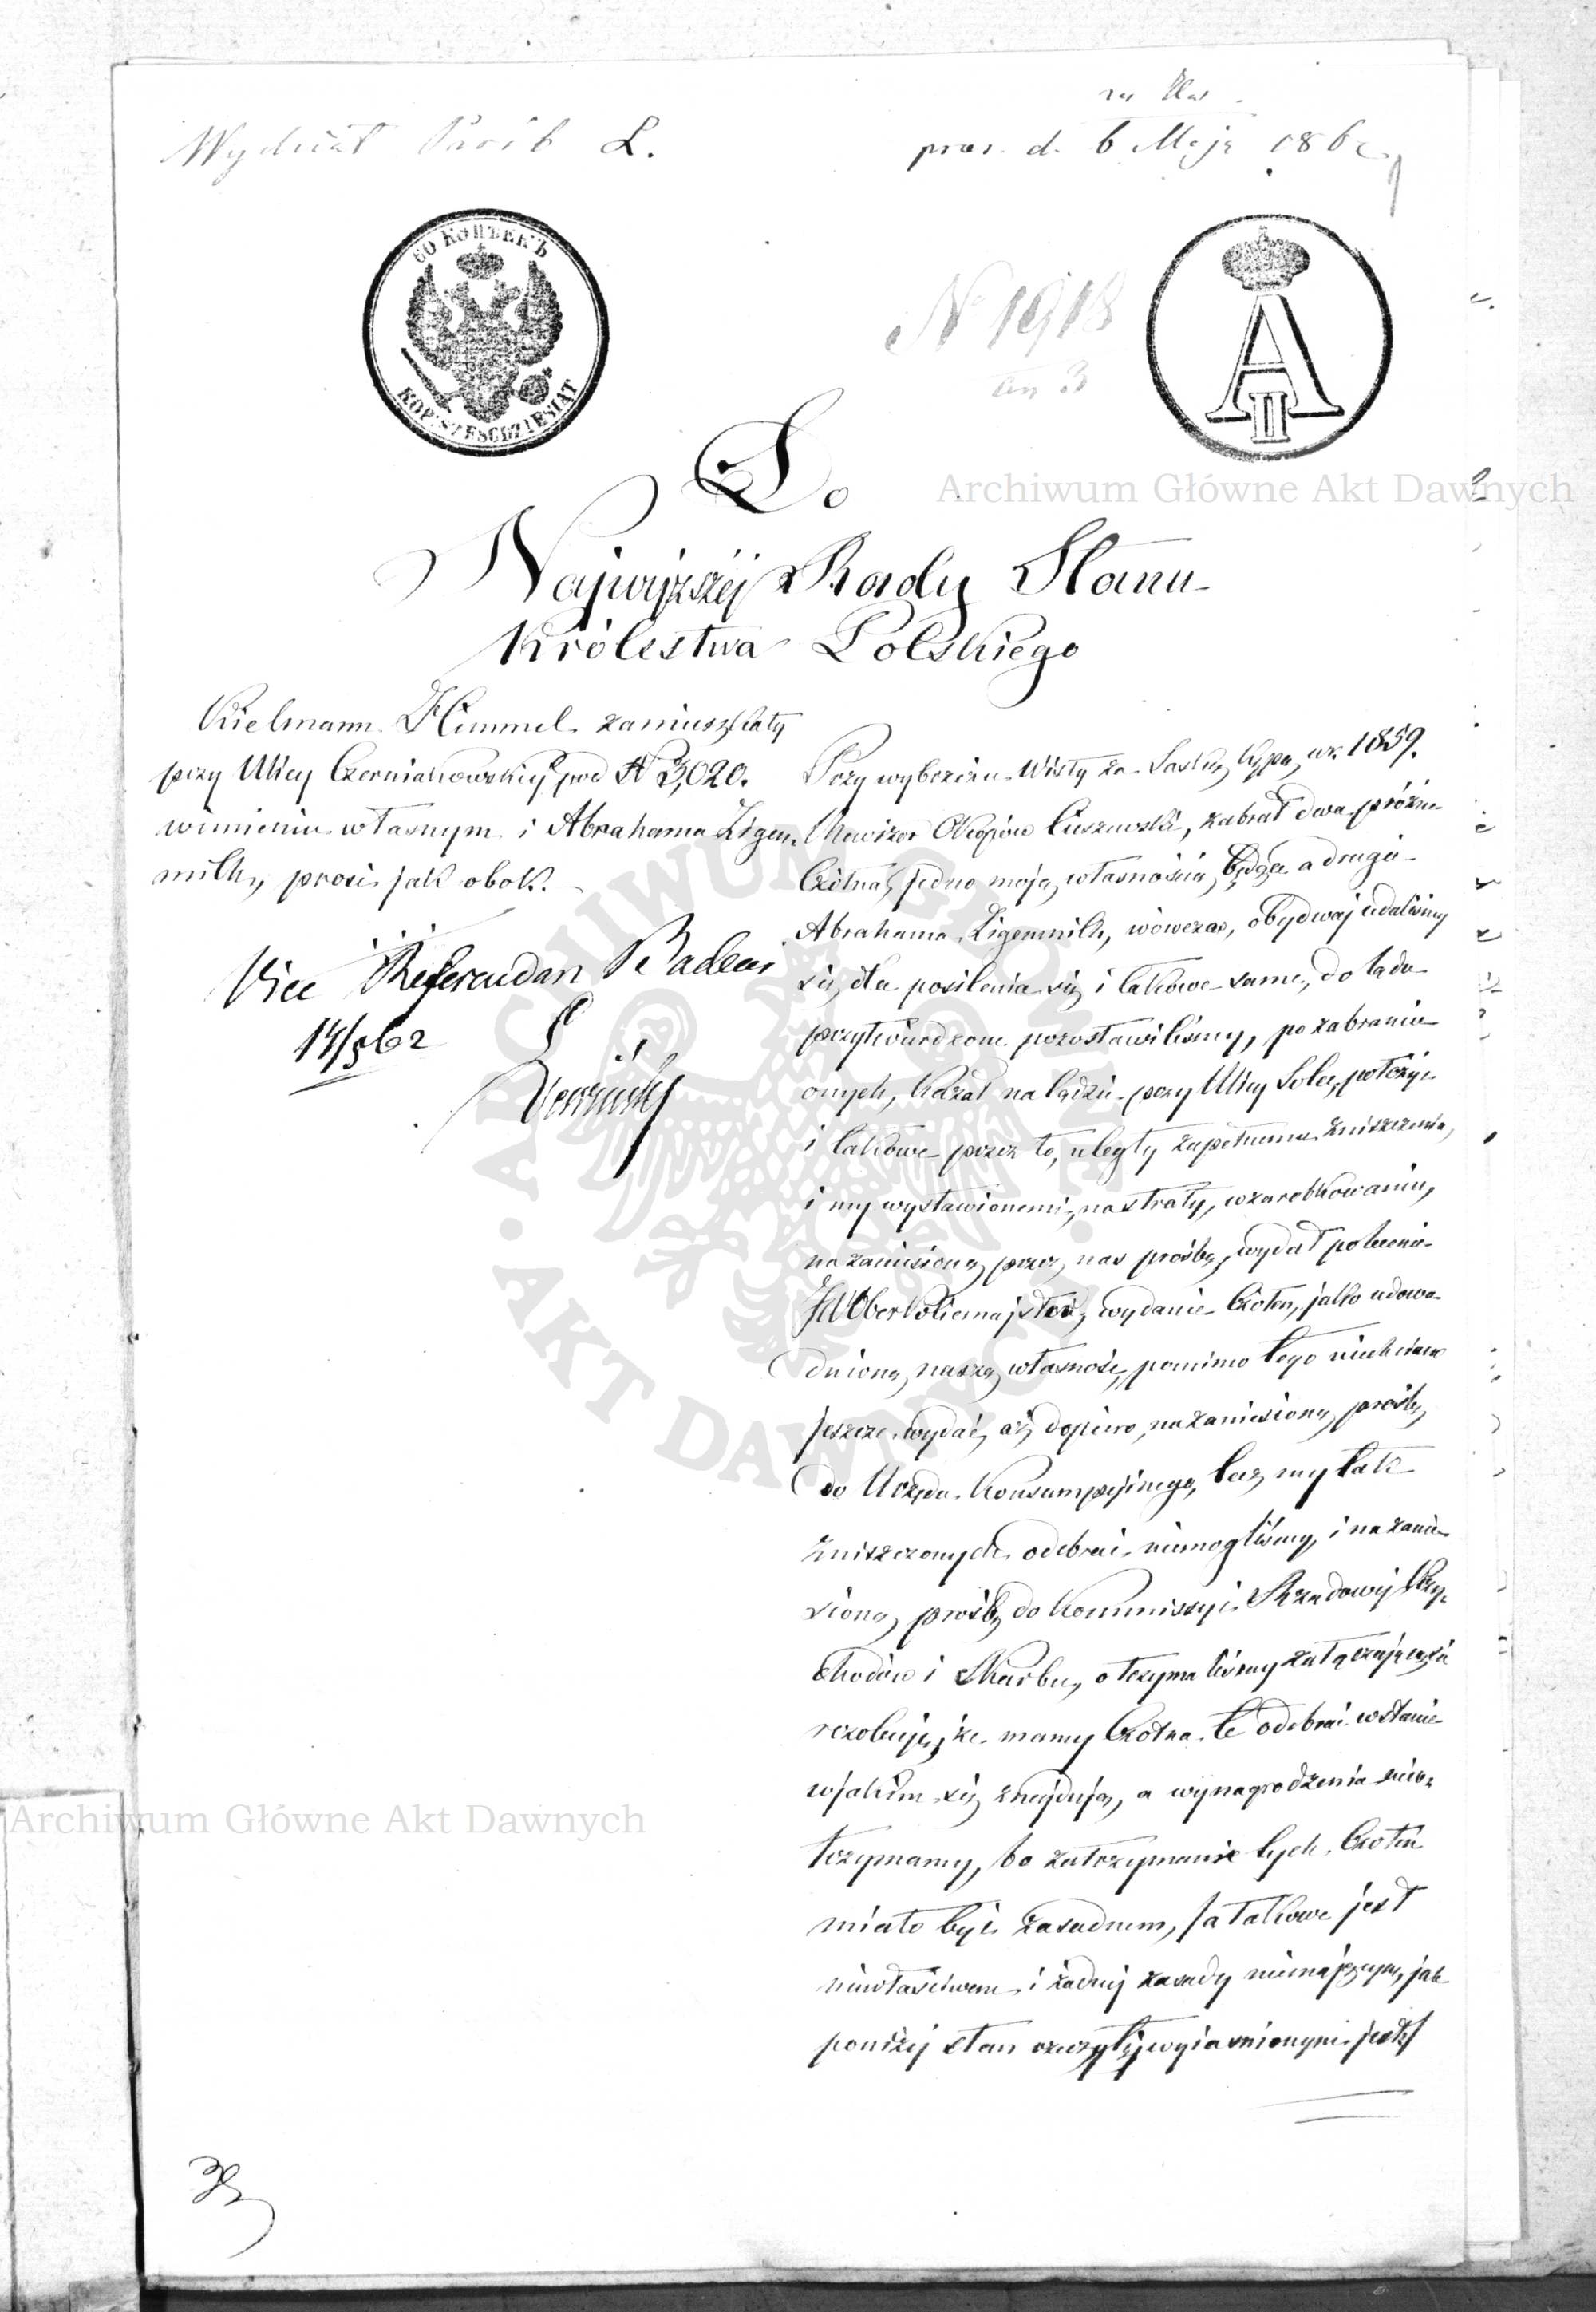 Wydział Próśb L.
prez. d. 6 Maja 1862
N 1918
60 КОПѢЕКЪ
KOP: SZEŚĆDZIESIĄT
A II
Do
Najwyższéj Rady Stanu
Królestwa Polskiego
Kielmann Himmel zamieszkały
przy Ulicy Czerniakowskiéj pod N 3,020.
wimieniu własnym i Abrahama Zigen-
milch, prosi jak obok.
Vice Referendarz Radca
14/5 62
Przy wybrzeżu Wisły za Saską Kępą, w r. 1859.
Rewizor Okopów Ciszewski, zabrał dwa próżne
Czółna, jedno moją własnością będące a drugie
Abrahama Zigenmilch, wówczas, obydwaj udaliśmy
się, dla posilenia się i takowe same, do lądu
przytwierdzone pozostawiliśmy, po zabraniu
onych, kazał na lądzie przy Ulicy Solec, położyć
i takowe przez to, uległy zupełnemu zniszczeniu,
i my wystawionemi, na straty, w zarobkowaniu,
na zaniesioną przez nas prośbę, wydał polecenie
JW Ober Policmajster, wydanie Czółen, jako udowo-
dnioną naszą własność, pomimo tego niechciano
jeszcze wydać, aż dopiero, na zaniesioną prośbę,
do Urzędu Konsumpcyjnego, lecz my tak
zniszczonych odebrać niemogliśmy, i na zanie-
sioną prośbę do Kommissyi Rządowéj Przy-
chodów i Skarbu, otrzymaliśmy załączającą się
rezolucję, że mamy Czółna te odebrać w stanie
wjakim się znajdują, a wynagrodzenia nieo-
trzymamy, bo zatrzymanie tych Czółen
miało być zasadnem, a takowe jest
niewłaściwem i żadnéj zasady niemającym, jak
poniżéj stan rzeczy wyjaśnionym jest
Archiwum Główne Akt Dawnych
Archiwum Główne Akt Dawnych
ARCHIWUM GŁÓWNE AKT DAWNYCH